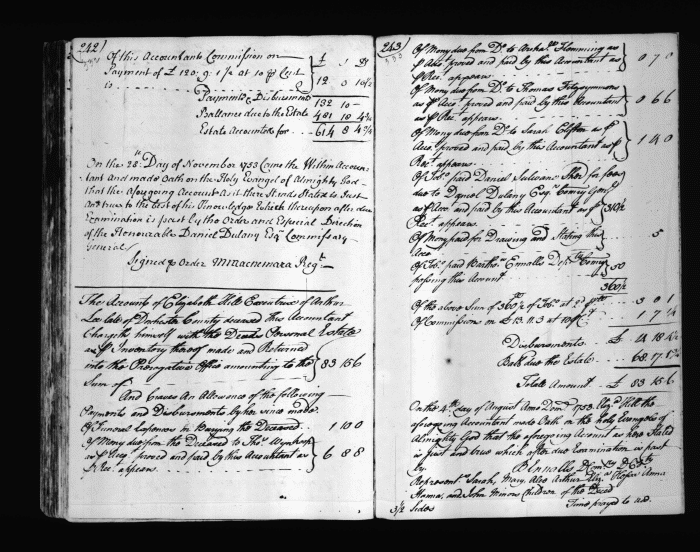 242
Of this Accountants Commission on
Payment of £ 120: 9: 1/2 at 10 pr Cent
to 12 0 10 1/2
Payments & Disbursements 132 10 -
Ballance due to the Estate 481 18 4 3/4
Estate Accounted for 614 8 4 3/4
On the 28th Day of November 1753 Came the Within Accoun-
tant and made Oath on the Holy Evangel of Almighty God
that the afsoing Account As it there Stands Stated is Just
and true to the best of his Knowledge Which thereupon after due
Examination is past by the Order and Especial Direction
of the Honourable Daniel Dulany Esqr Commissary
General
Signed p Order Regtr
The Account of Elizabeth Hill Executrix of Arthur
late of Dorchester County deceased this Accountant
Chargeth himself with the Deceds Personal Estate
as p Inventory thereof made and Returned
into the Prerogative Office amounting to the
Sum of 83 15 6
And Craves An Allowance of the following
Payments and Disbursements by her since made
Of Funeral Expences in Burying the Deceased 1 10 0
Of Mony due from the Deceased to Thos
as p Acct proved and paid by this Accountant as
p Rect appears 6 8 8
243
Of Mony due from Do to Archa Flemming as
p Acct proved and paid by this Accountant as
p Rect appears 0 7 0
Of Mony due from Do to Thomas Fitzsimmons
as p Acct proved and paid by this Accountant
as p Rect appears 0 6 6
Of Mony due from Do to Sarah Clifton as p
Acct proved and paid by this Accountant as p
Rect appears 1 4 0
Of Tobo paid Daniel Sulivane Sher for fees
due to Daniel Dulany Esqr Comry Genl
as p Acct and paid by this Accountant as p
Rect appears 310 1/2
Of Mony paid for Drawing and Stating this
Acct 5
Of Tobo paid Barthw Ennalls Depty Comry
passing this Account 50
360 1/2
Of the above Sum of 360 1/2 of Tobo at 2d p 3 0 1
Of Commissions on £ 13. 11. 3 at 10 pCt 1 7 1/4
Disbursements £ 14 18 4 1/4
Ball due the Estate 68 17 1 3/4
Totall Amount £ 83 15 6
On the 4th day of August Anno Dom 1753 Elizt Hill the
aforegoing Accountant made Oath on the holy Evangels of
Almighty God that the aforegoing Account as here Stated
is just and true which after due Examination is past
by B Ennalls Depty Comry
Represent Sarah, Mary, Alce Arthur Eliza Anna
and John Minors Children of the Deced
3 1/2 Sides